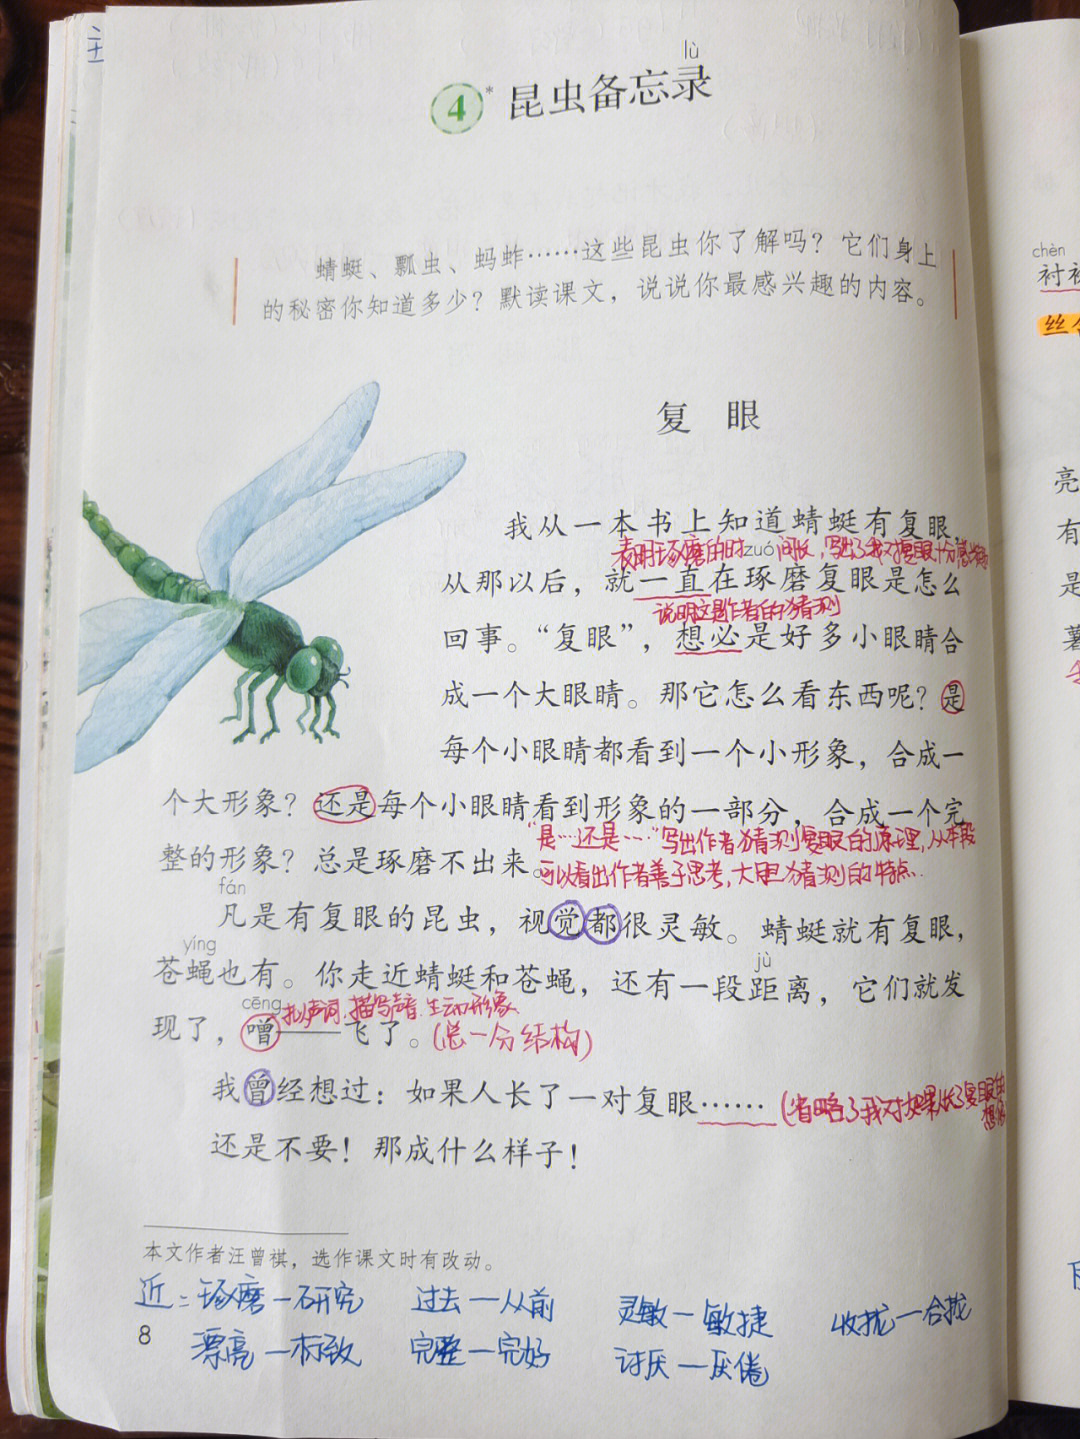 lù
4* 昆虫备忘录
蜻蜓、瓢虫、蚂蚱……这些昆虫你了解吗？它们身上
的秘密你知道多少？默读课文，说说你最感兴趣的内容。
复 眼
我从一本书上知道蜻蜓有复眼，
表明琢磨的时间长，写出了我对复眼十分
zuó
从那以后，就一直在琢磨复眼是怎么
说明这是作者的猜测
回事。“复眼”，想必是好多小眼睛合
成一个大眼睛。那它怎么看东西呢？是
每个小眼睛都看到一个小形象，合成一
个大形象？还是每个小眼睛看到形象的一部分，合成一个完
“是…还是……”写出作者猜测复眼的原理，从本段
整的形象？总是琢磨不出来。
可以看出作者善于思考，大胆猜测的特点.
fán
凡是有复眼的昆虫，视觉都很灵敏。蜻蜓就有复眼，
yíng
jù
苍蝇也有。你走近蜻蜓和苍蝇，还有一段距离，它们就发
cēng
拟声词，描写声音，生动形象.
现了，噌——飞了。(总一分结构)
我曾经想过：如果人长了一对复眼……(省略了我对如果人长了复眼的想
还是不要！那成什么样子！
本文作者汪曾祺，选作课文时有改动。
近：琢磨一研究 过去一从前 灵敏一敏捷 收拢一合拢
8
漂亮一标致 完整一完好 讨厌一厌倦
chèn
衬
丝
亮
有
是
薯